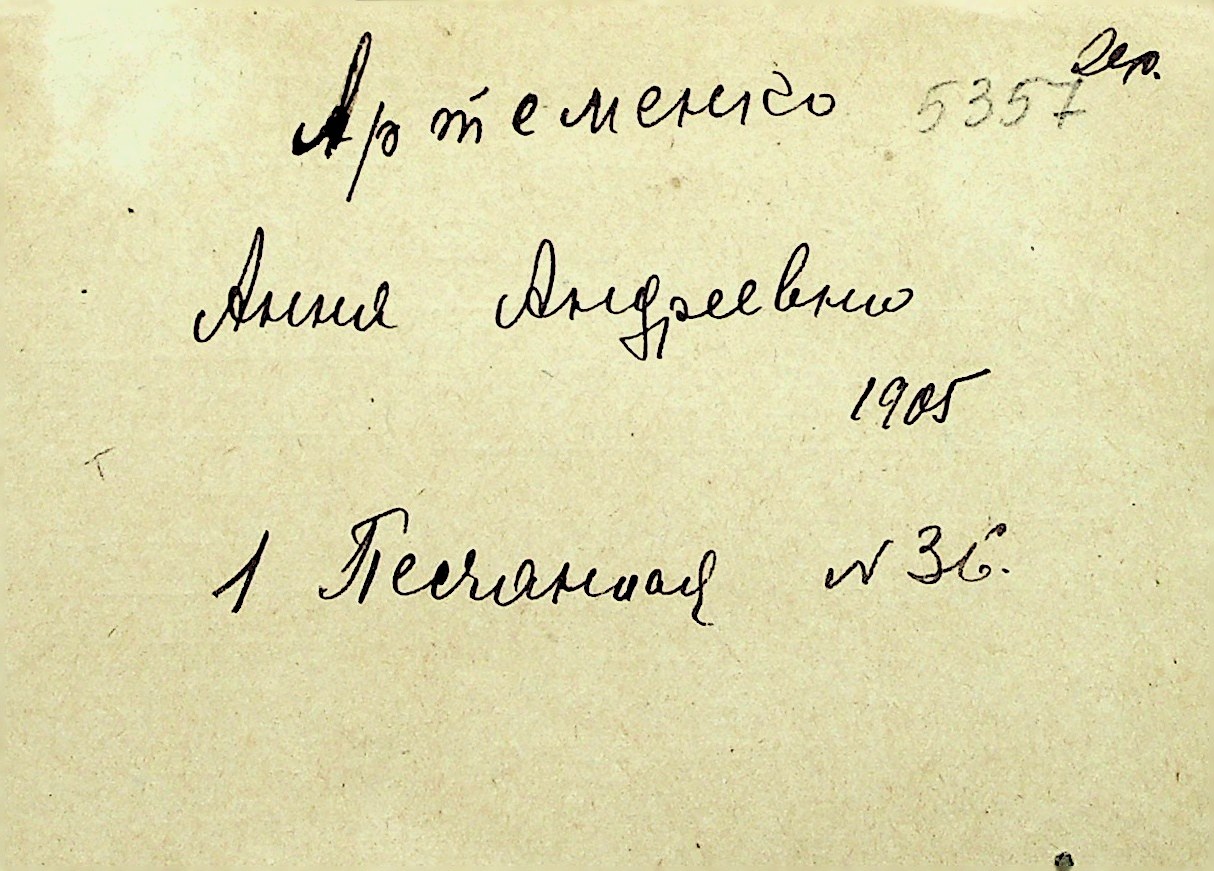 Артеменко 5357
Анна Андреевна
1905
1 Песчаная № 36.